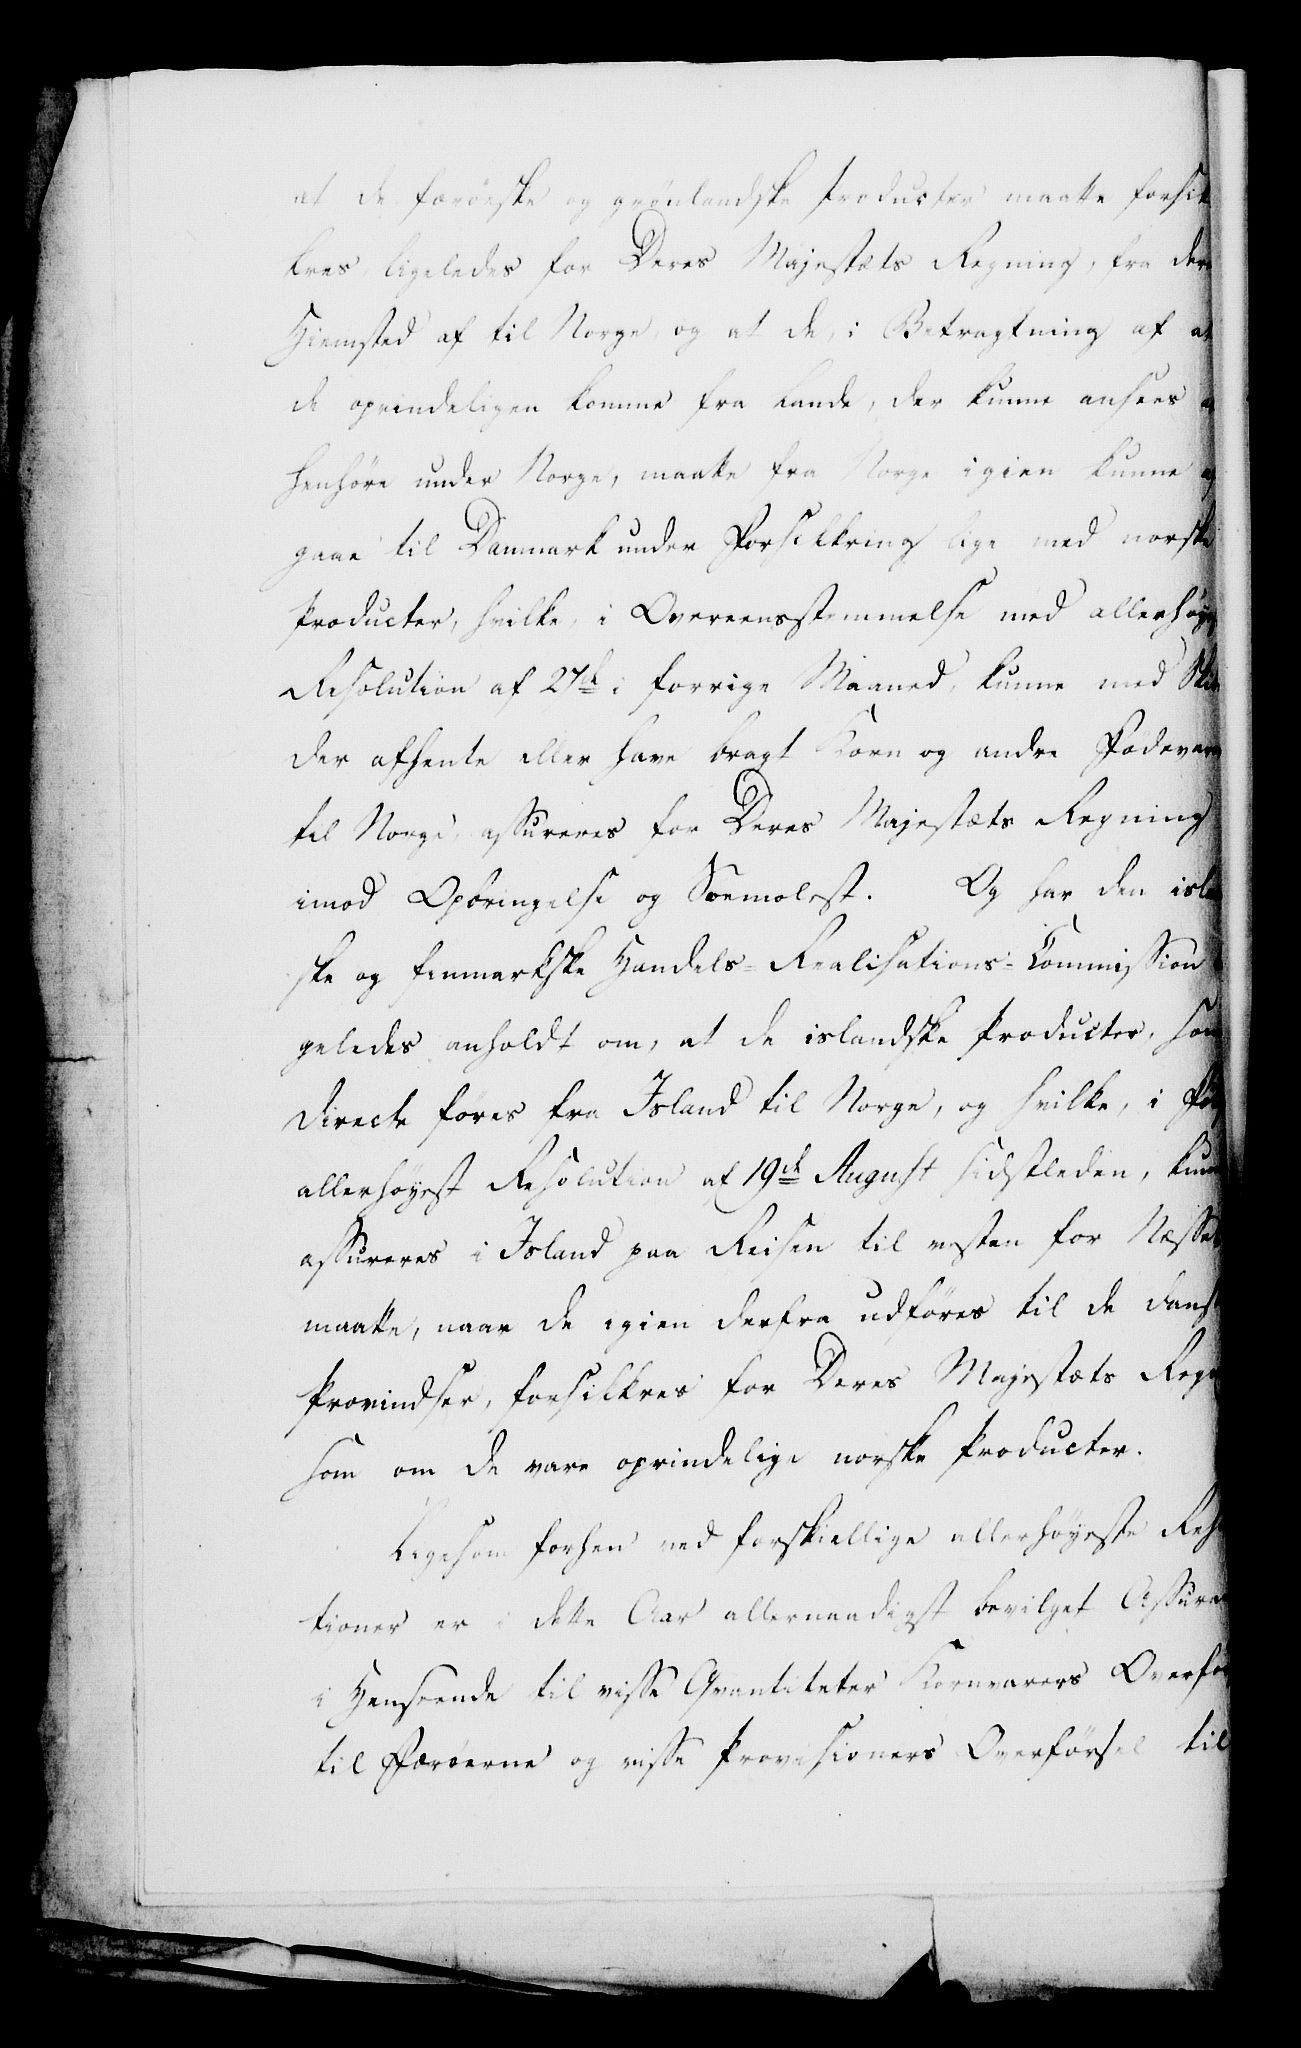 at de færöeske og grönlandske Producter maatte forsik
kres ligeledes for Deres Majestæts Regning, fra dere
Hiemsted af til Norge, og at de, i Betragtning af at
de oprindeligen komme fra Lande, der kunne ansees a
henhöre under Norge, maatte fra Norge igien kunne a
gaae til Danmark under Forsikkring lige med norske
Producter, hvilke, i Overeensstemmelse med allerhöy
Resolution af 27de i forrige Maaned, kunne med Ski
der afhente eller have bragt Korn og andre Födevare
til Norge, assureres for Deres Majestæts Regning
imod Opbringelse og Söemolest. Og har den isla
ske og finmarkske Handels-Realisations-Commission
geledes anholdt om, at de islandske Producter, som
directe föres fra Island til Norge, og hvilke, i Föl
allerhöyest Resolution af 19de August sidstleden, kun
assureres i Island paa Reisen til vesten for Næsset
maatte, naar de igien derfra udföres til de dansk
Provindser, forsikkres for Deres Majestæts Regn
som om de vare oprindelige norske Producter.
Ligesom forhen ved forskiellige allerhöyeste Reso
tioner er i dette Aar allernaadigst bevilget Assura
i Henseende til visse Qvantiteter Kornvarers Overför
til Færöerne og visse Provisioners Overförsel til